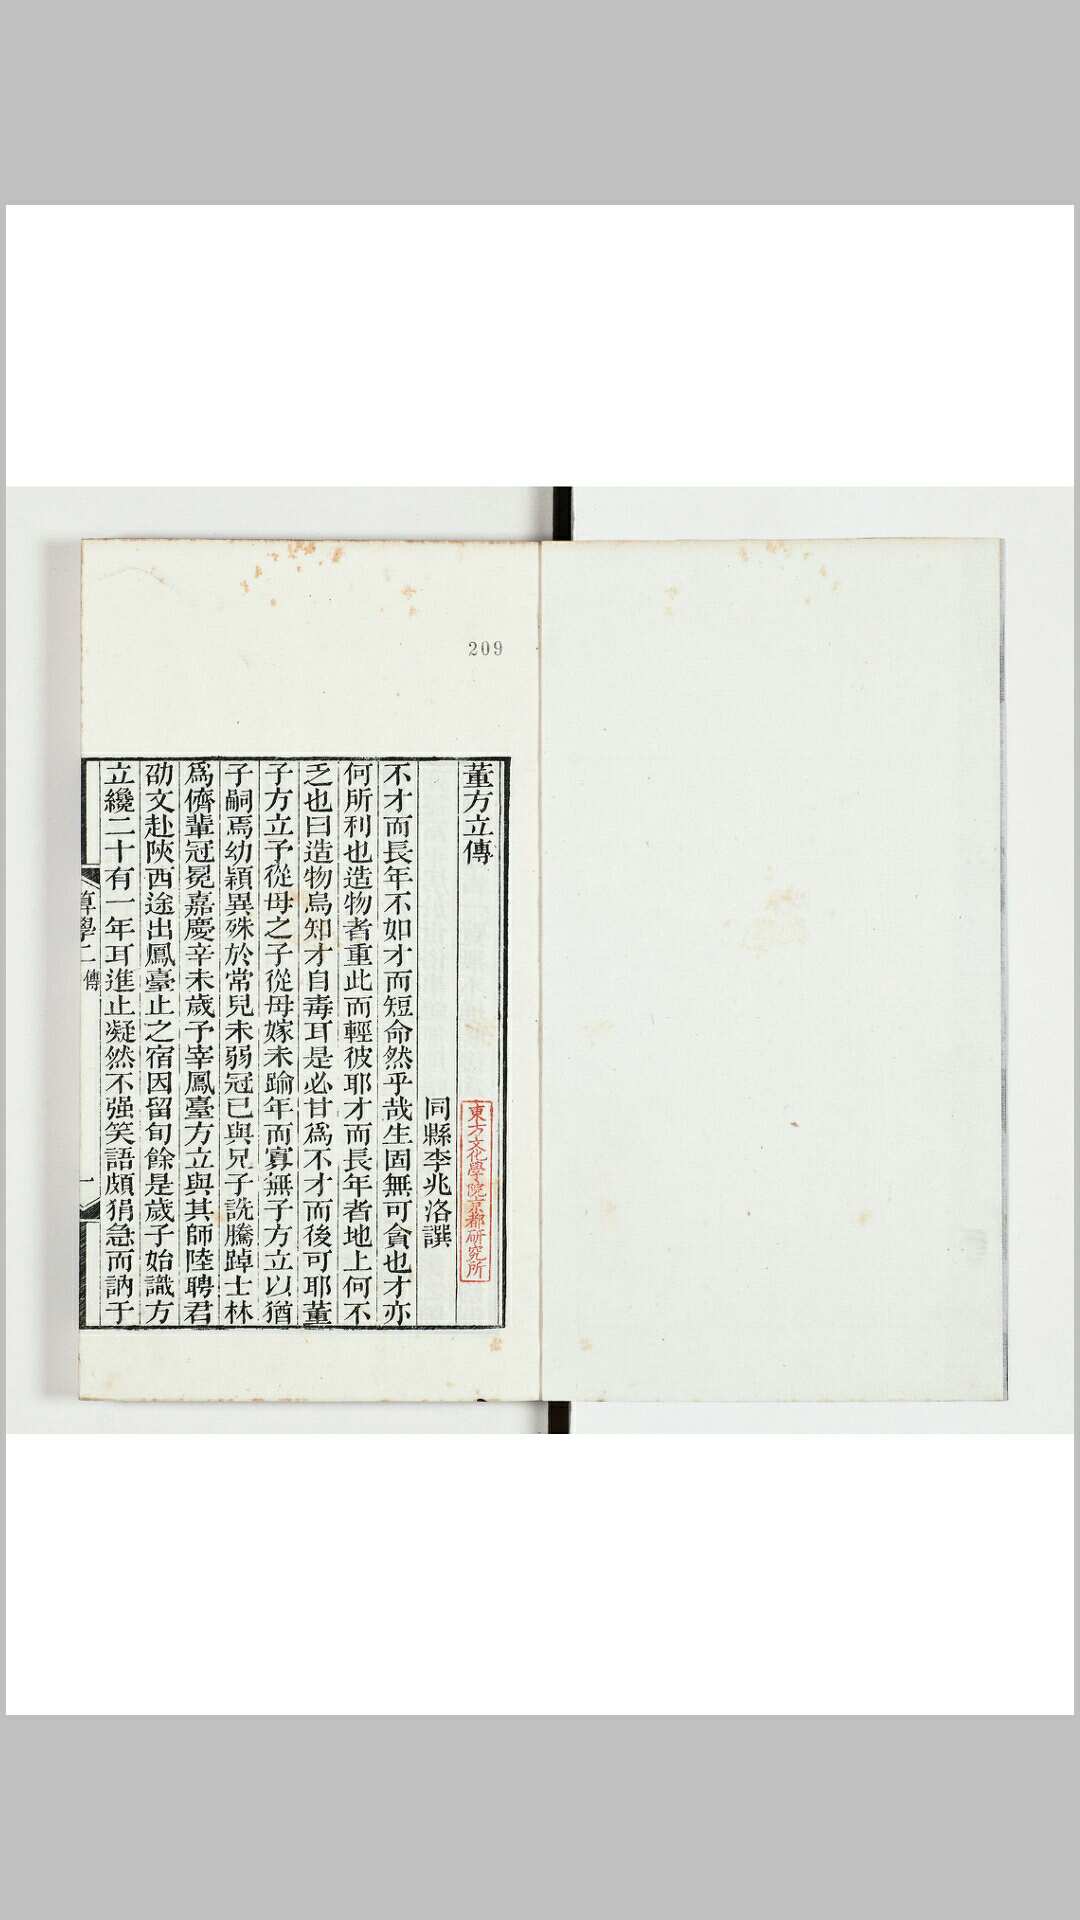 209
董方立傳
東方文化學院京都研究所
同縣李兆洛譔
不才而長年不如才而短命然乎哉生固無可貪也才亦
何所利也造物者重此而輕彼耶才而長年者地上何不
乏也曰造物烏知才自毒耳是必甘爲不才而後可耶董
子方立予從母之子從母嫁未踰年而寡無子方立以猶
子嗣焉幼穎異殊於常兒未弱冠已與兄子詵騰踔士林
爲儕輩冠冕嘉慶辛未歲予宰鳳臺方立與其師陸聘君
劭文赴陝西途出鳳臺止之宿因留旬餘是歲予始識方
立纔二十有一年耳進止凝然不强笑語頗狷急而訥于
算學二 傳 一